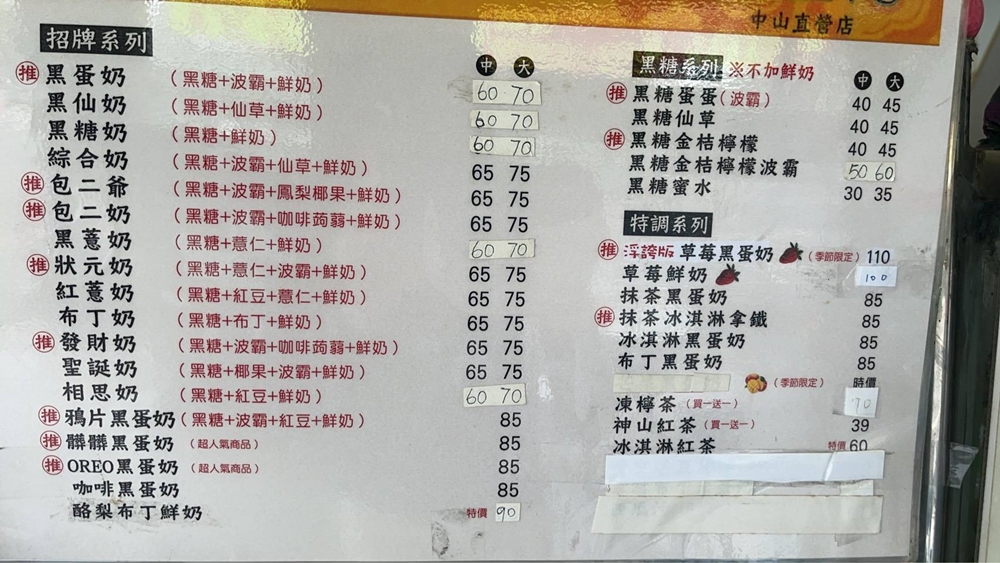 中山直營店
招牌系列
中 大
推 黑蛋奶 (黑糖+波霸+鮮奶) 60 70
黑仙奶 (黑糖+仙草+鮮奶) 60 70
黑糖奶 (黑糖+鮮奶) 60 70
綜合奶 (黑糖+波霸+仙草+鮮奶) 65 75
推 包二爺 (黑糖+波霸+鳳梨椰果+鮮奶) 65 75
推 包二奶 (黑糖+波霸+咖啡蒟蒻+鮮奶) 65 75
黑薏奶 (黑糖+薏仁+鮮奶) 60 70
推 狀元奶 (黑糖+薏仁+波霸+鮮奶) 65 75
紅薏奶 (黑糖+紅豆+薏仁+鮮奶) 65 75
布丁奶 (黑糖+布丁+鮮奶) 65 75
推 發財奶 (黑糖+波霸+咖啡蒟蒻+鮮奶) 65 75
聖誕奶 (黑糖+椰果+波霸+鮮奶) 65 75
相思奶 (黑糖+紅豆+鮮奶) 60 70
推 鴉片黑蛋奶 (黑糖+波霸+紅豆+鮮奶) 85
推 髒髒黑蛋奶 (超人氣商品) 85
推 OREO黑蛋奶 (超人氣商品) 85
咖啡黑蛋奶 85
酪梨布丁鮮奶 特價 90
黑糖系列 ※不加鮮奶
中 大
推 黑糖蛋蛋(波霸) 40 45
黑糖仙草 40 45
推 黑糖金桔檸檬 40 45
黑糖金桔檸檬波霸 50 60
黑糖蜜水 30 35
特調系列
推 浮誇版 草莓黑蛋奶 (季節限定) 110
草莓鮮奶 100
抹茶黑蛋奶 85
推 抹茶冰淇淋拿鐵 85
冰淇淋黑蛋奶 85
布丁黑蛋奶 85
(季節限定) 時價
凍檸茶 (買一送一) 70
神山紅茶 (買一送一) 39
冰淇淋紅茶 特價 60